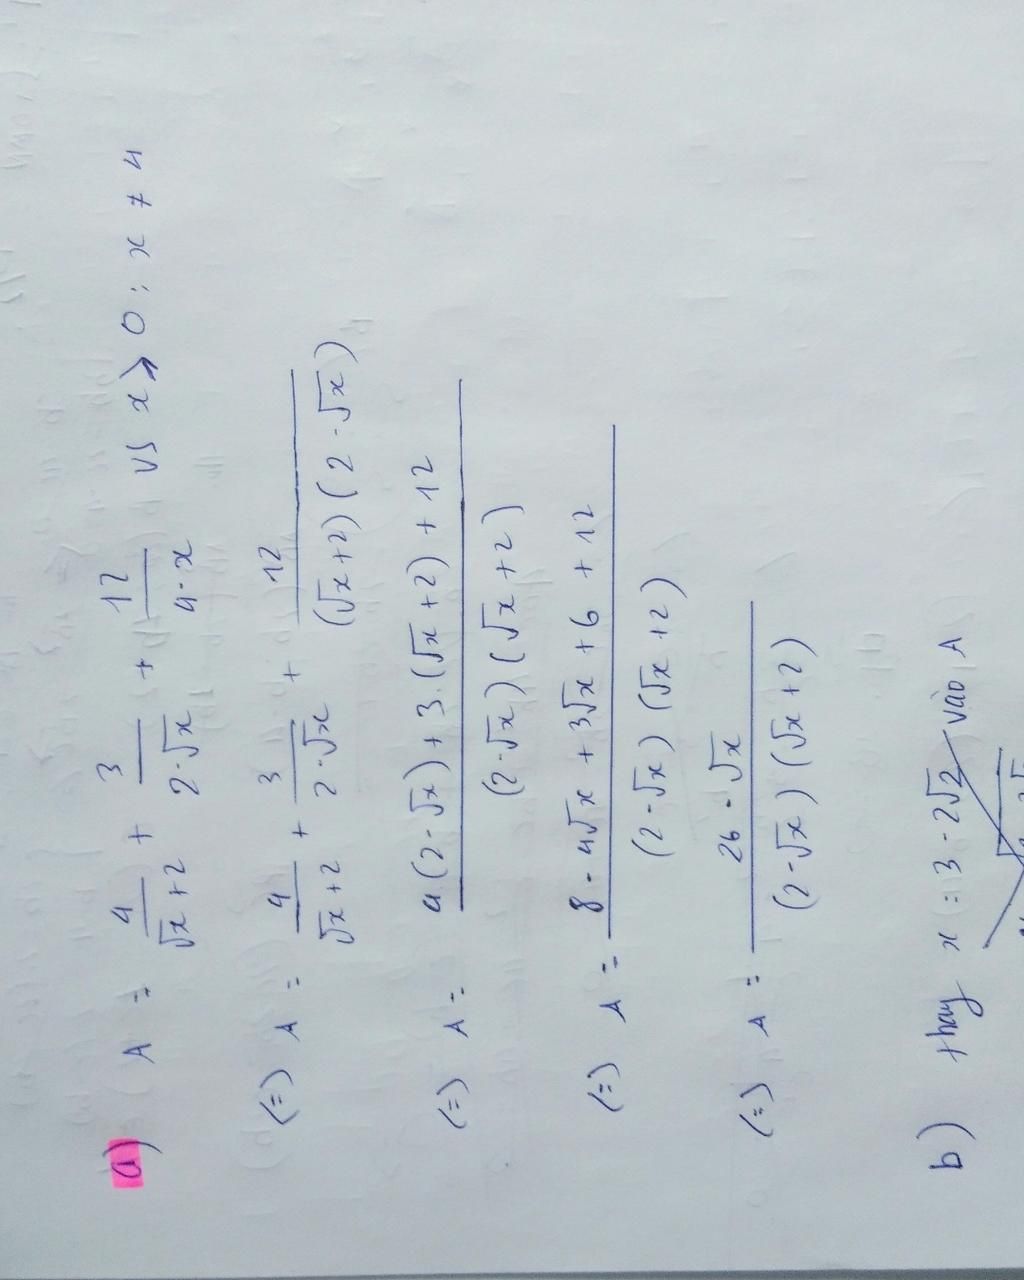 a) A = 4/(√x + 2) + 3/(2 - √x) + 12/(4 - x) vs x ⩾ 0 ; x ≠ 4
(=) A = 4/(√x + 2) + 3/(2 - √x) + 12/((√x + 2)(2 - √x))
(=) A = (4.(2 - √x) + 3.(√x + 2) + 12)/((2 - √x)(√x + 2))
(=) A = (8 - 4√x + 3√x + 6 + 12)/((2 - √x)(√x + 2))
(=) A = (26 - √x)/((2 - √x)(√x + 2))
b) thay x = 3 - 2√2 vào A